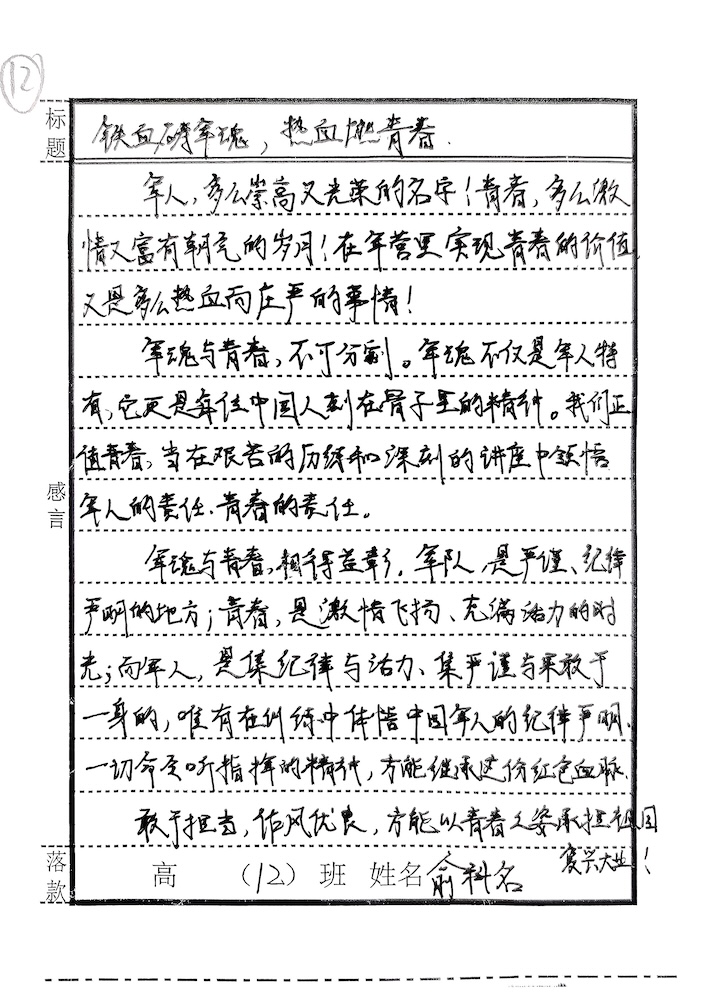 12
标题
铁血铸军魂，热血燃青春.
军人，多么崇高又光荣的名字！青春，多么激
情又富有朝气的岁月！在军营里实现青春的价值，
又是多么热血而庄严的事情！
军魂与青春，不可分割。军魂不仅是军人特
有，它更是每位中国人刻在骨子里的精神。我们正
值青春，当在艰苦的历练和深刻的讲座中领悟
军人的责任、青春的责任。
感言
军魂与青春，相得益彰，军队，是严谨、纪律
严明的地方；青春，是激情飞扬、充满活力的时
光；而军人，是集纪律与活力、集严谨与果敢于
一身的，唯有在训练中体悟中国军人的纪律严明、
一切命令听指挥的精神，方能继承这份红色血脉.
敢于担当，作风优良，方能以青春之姿承担祖国
复兴大业！
落款
高 （12）班 姓名 俞科名